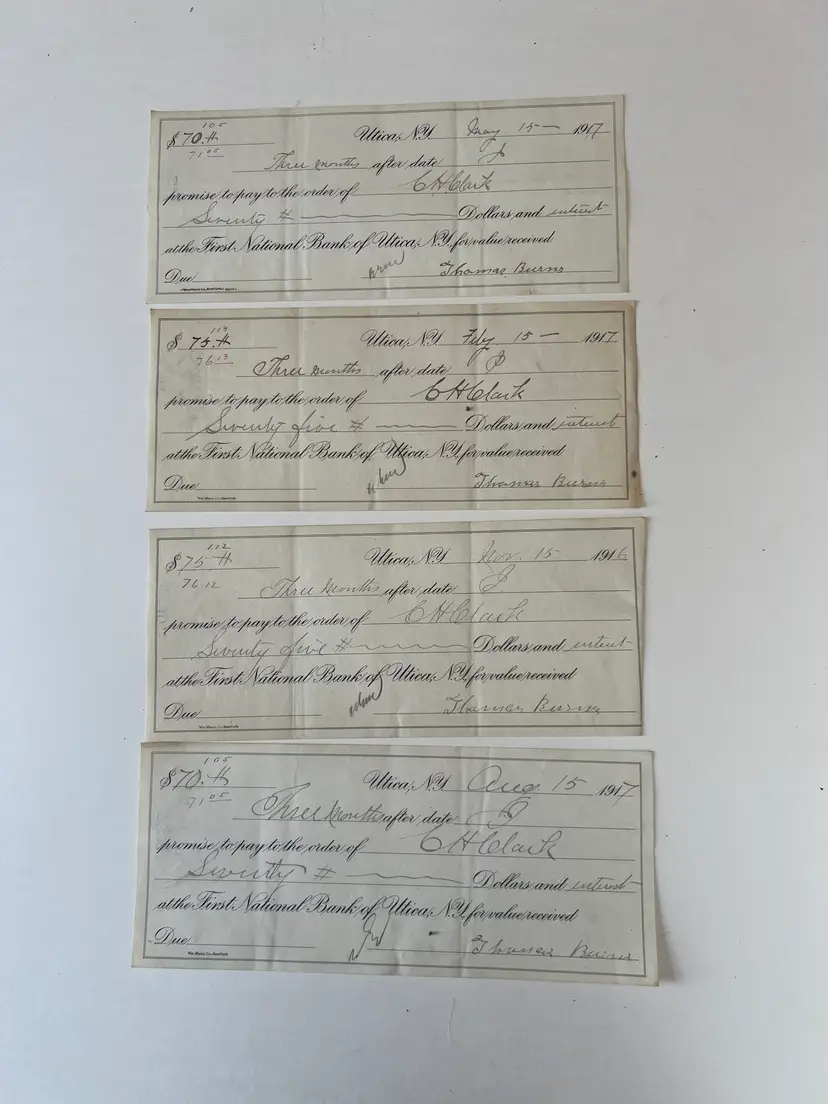 105
$70.#
71 05
Utica, N.Y. May 15 — 1917
Three months after date I
promise to pay to the order of C H Clark
Seventy # Dollars and interest
at the First National Bank of Utica, N.Y. for value received
Due Thomas Burns
113
$75.#
76 13
Utica, N.Y. Feby. 15 — 1917
Three months after date I
promise to pay to the order of C H Clark
Seventy five # Dollars and interest
at the First National Bank of Utica, N.Y. for value received
Due Thomas Burns
112
$75 #
76 12
Utica, N.Y. Nov. 15 1916
Three Months after date I
promise to pay to the order of C H Clark
Seventy five # Dollars and interest
at the First National Bank of Utica, N.Y. for value received
Due Thomas Burns
105
$70.#
71 05
Utica, N.Y. Aug. 15 1917
Three Months after date I
promise to pay to the order of C H Clark
Seventy # Dollars and interest
at the First National Bank of Utica, N.Y. for value received
Due Thomas Burns